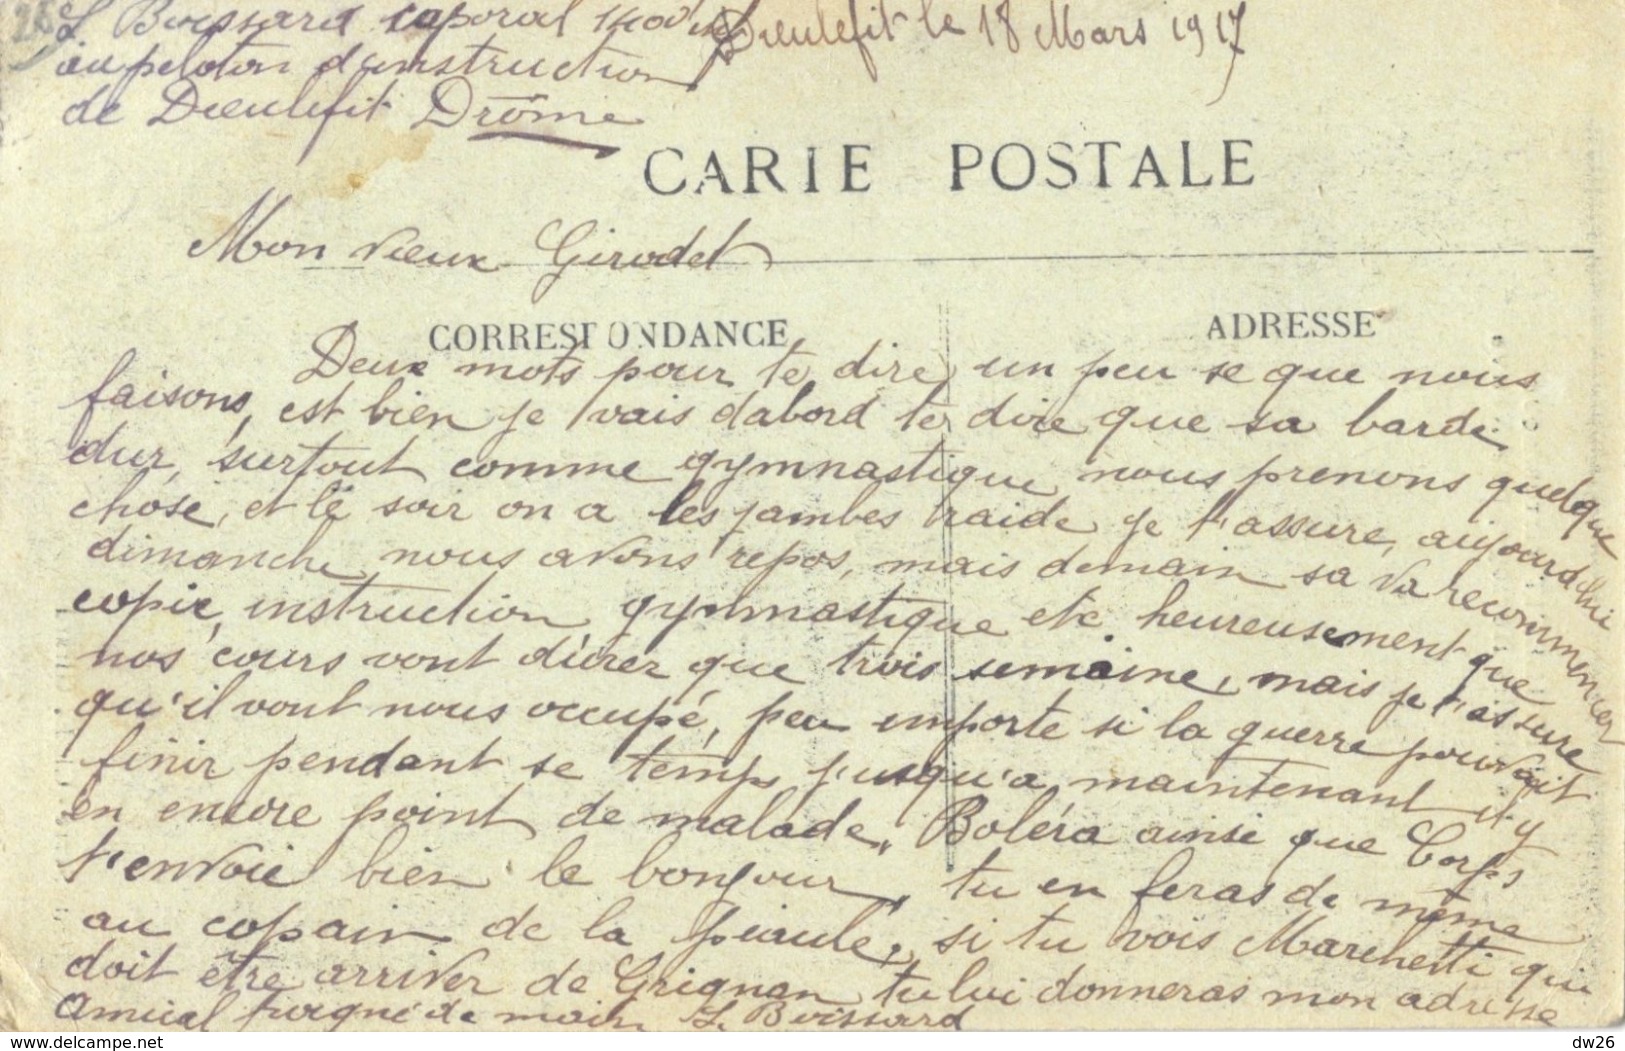 L Boissard caporal 140e inf Dieulefit le 18 Mars 1917
au peloton d'instruction
de Dieulefit Drôme
CARTE POSTALE
Mon vieux Girodet
CORRESPONDANCE
ADRESSE
Deux mots pour te dire un peu se que nous
faisons, est bien je vais dabord te dire que sa barde
dur, surtout comme gymnastique nous prenons quelque
chose, et le soir on a les jambes raide je t'assure, aujourd'hui
dimanche nous avons repos, mais demain sa va recommencer
copie, instruction gymnastique etc heureusement que
nos cours vont durer que trois semaine, mais je t'assure
qu'il vont nous occupé, peu importe si la guerre pouvait
finir pendant se temps jusqu'a maintenant il y
en encore point de malade, Boléra ainsi que Corps
t'envoie bien le bonjour, tu en feras de même
au copain de la piaule, si tu vois Marchetti qui
doit être arriver de Grignan tu lui donneras mon adresse
Amical poigné de main L Boissard
delcampe.net
dw26